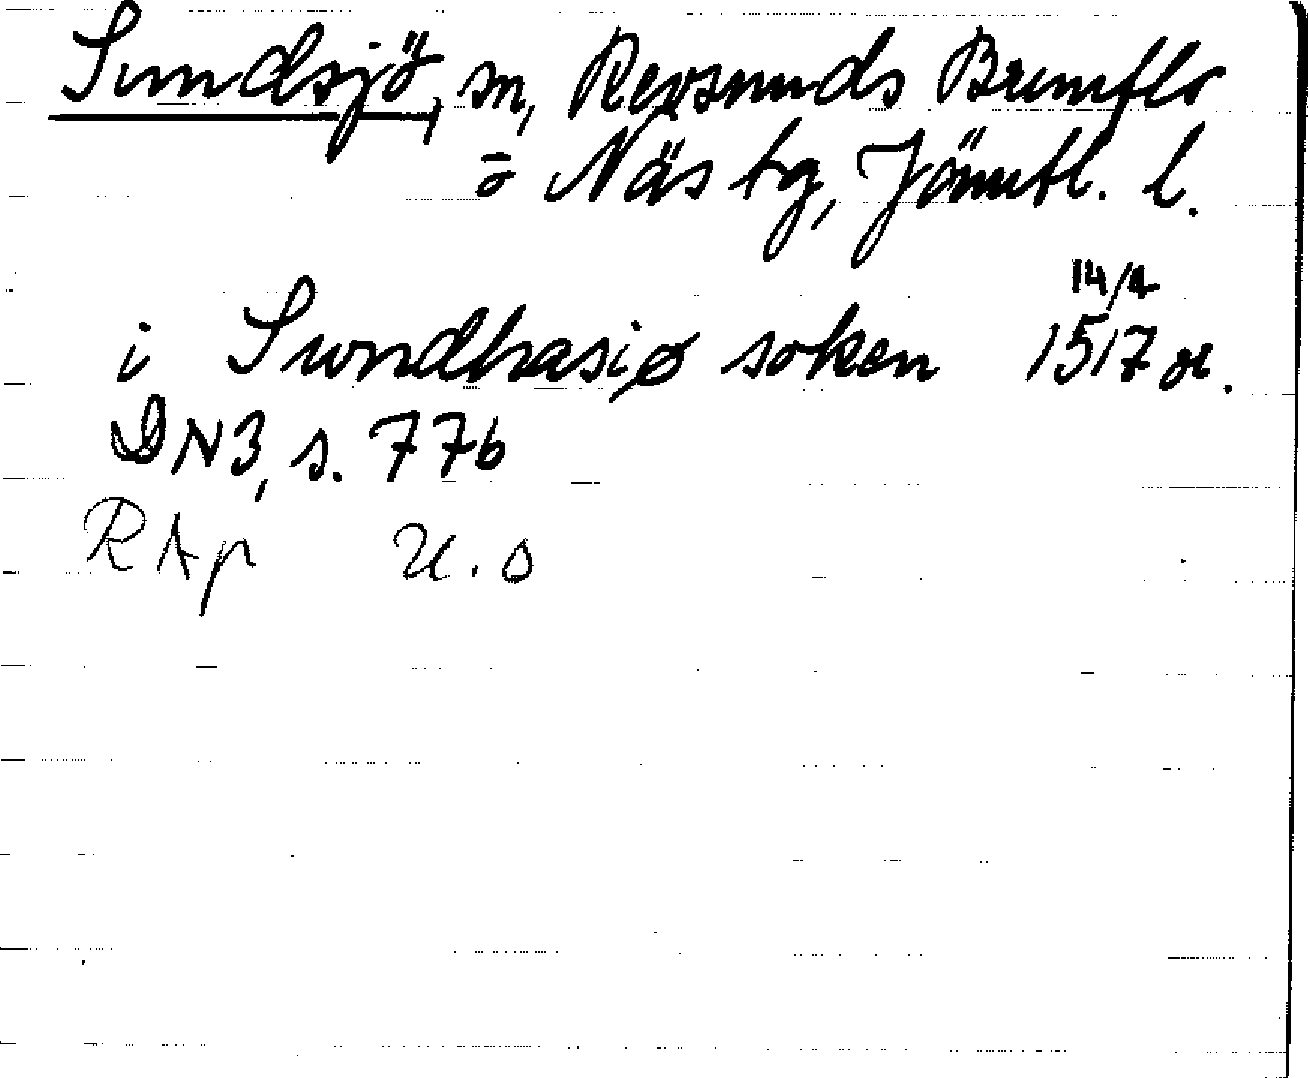 Sundsjö, sn, Revsunds Brunflo
o Näs tg, Jämtl. l.
14/4
i Swndhasiø soken 1517 or.
DN3, s. 776
RAp U. s